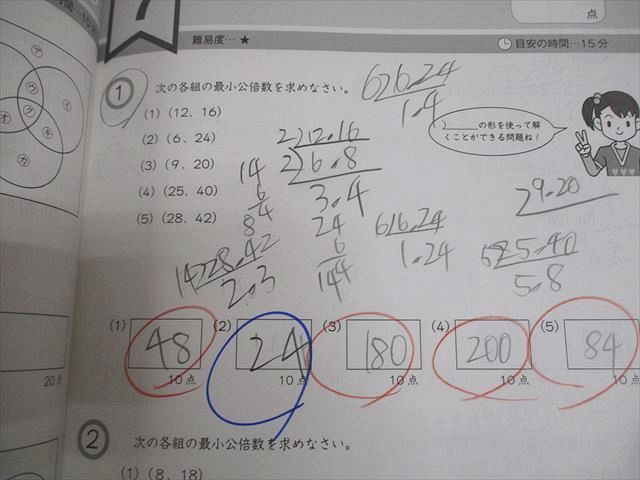 7
点
難易度…★
目安の時間…15分
1 次の各組の最小公倍数を求めなさい。
(1) (12、16)
(2) (6、24)
(3) (9、20)
(4) (25、40)
(5) (28、42)
の形を使って解
くことができる問題ね!
6)6.24
1.4
2)12.16
2)6.8
3.4
14
6
84
24
6
144
6)6.24
1.24
2 9.20
5)25.40
5.8
14)28.42
2.3
(1) 48 10点
(2) 24 10点
(3) 180 10点
(4) 200 10点
(5) 84 10点
20点
ア
ウ
イ
オ
キ
カ
2 次の各組の最小公倍数を求めなさい。
(1) (8、18)